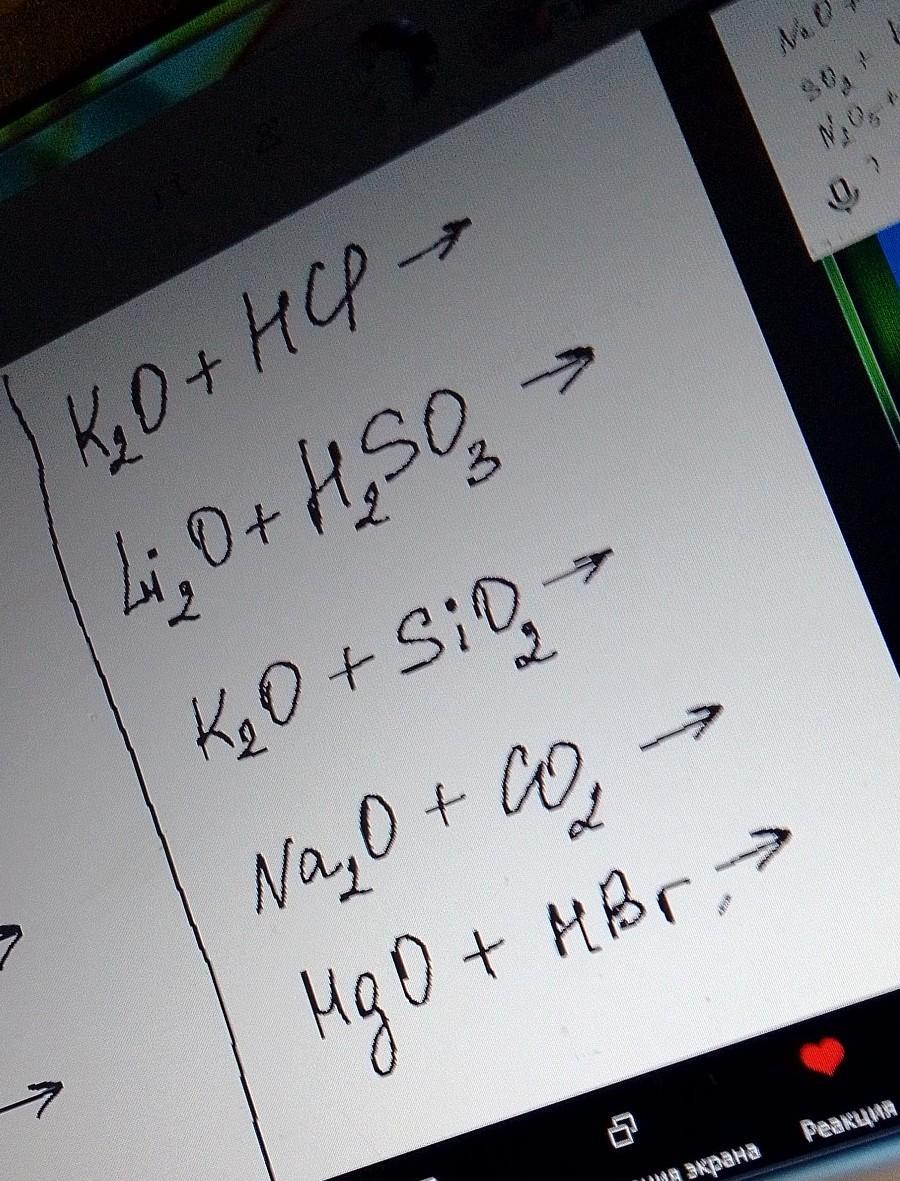 K₂O + HCl →
Li₂O + H₂SO₃ →
K₂O + SiO₂ →
Na₂O + CO₂ →
MgO + HBr →
SO₂ +
N₂O₅ +
экрана
Реакция